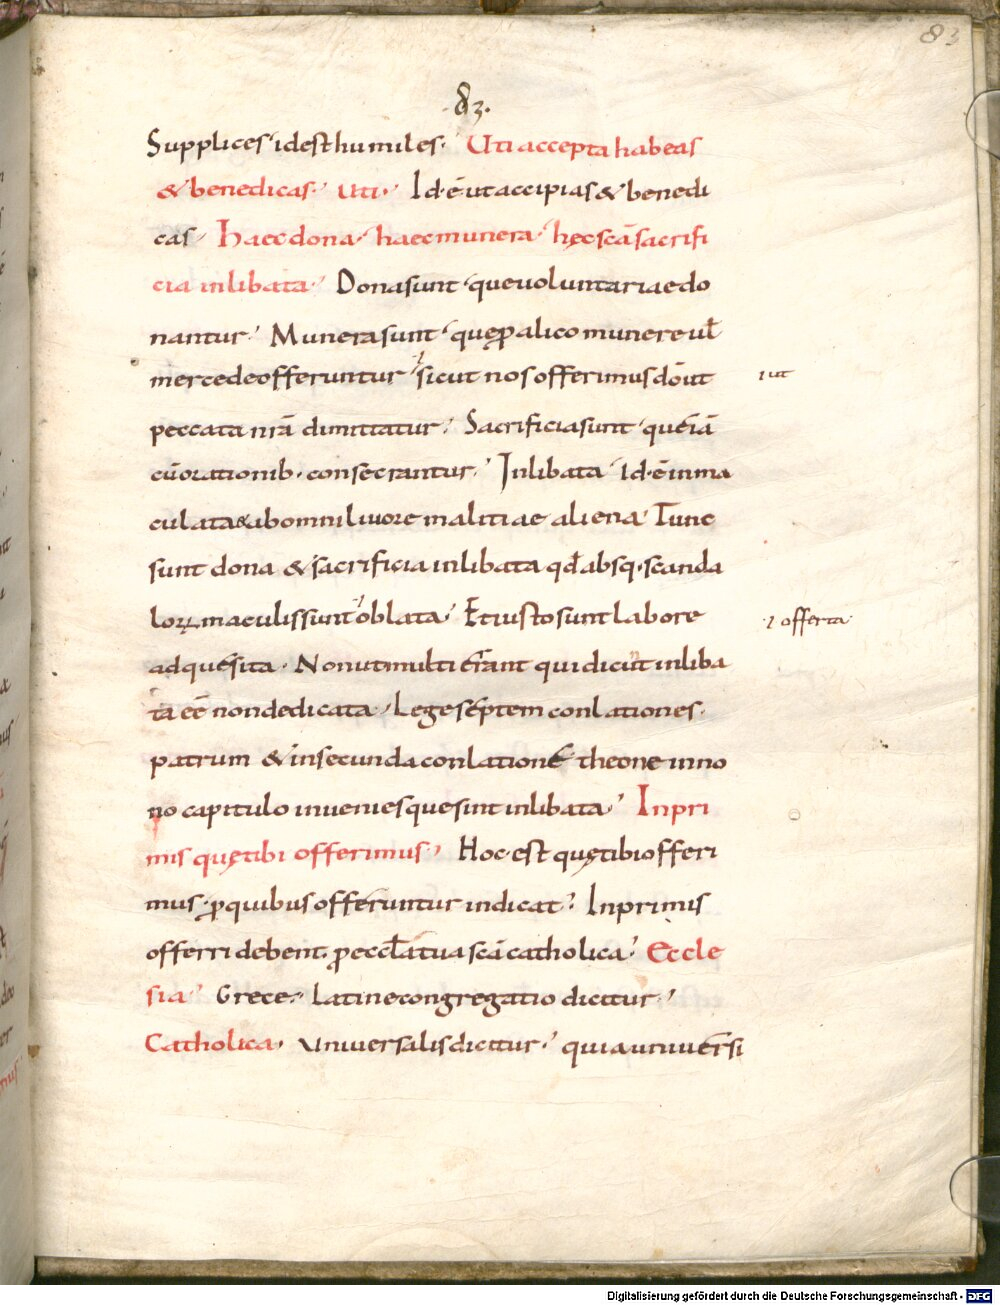 83
·83·
Supplices· id est humiles· Uti accepta habeas
& benedicas· uti· Id·ē ut accipias & benedi
cas· Haec dona· haec munera· hęc scā sacrifi
cia inlibata· Dona sunt· que voluntariae do
nantur· Munera sunt· quę ꝓ alico munere uł
mercede offeruntur· sicut nos offerimus dō ut
ł ut
peccata nrā dimittatur· Sacrificia sunt· que iā
cū orationib· consecrantur· Inlibata· Id·ē inma
culata & ab omni livore malitiae aliena· Tunc
sunt dona & sacrificia inlibata qđ absq· scanda
loꝝ maculis sunt oblata· Et iusto sunt labore
ł offerta·
adquesita· Non ut multi errant qui dicūt inliba
ta eē non dedicata· Lege septem conlationes·
patrum & in secunda conlatione theone in no
no capitulo invenies que sint inlibata· Inpri
mis quę tibi offerimus· Hoc est quę tibi offeri
mus· ꝓ quibus offeruntur indicat· Inprimis
offerri debent· ꝓ eccła tua scā catholica· Eccle
sia· Grece· Latine congregatio dicitur·
Catholica· Universalis dicitur· quia universi
Digitalisierung gefördert durch die Deutsche Forschungsgemeinschaft - DFG